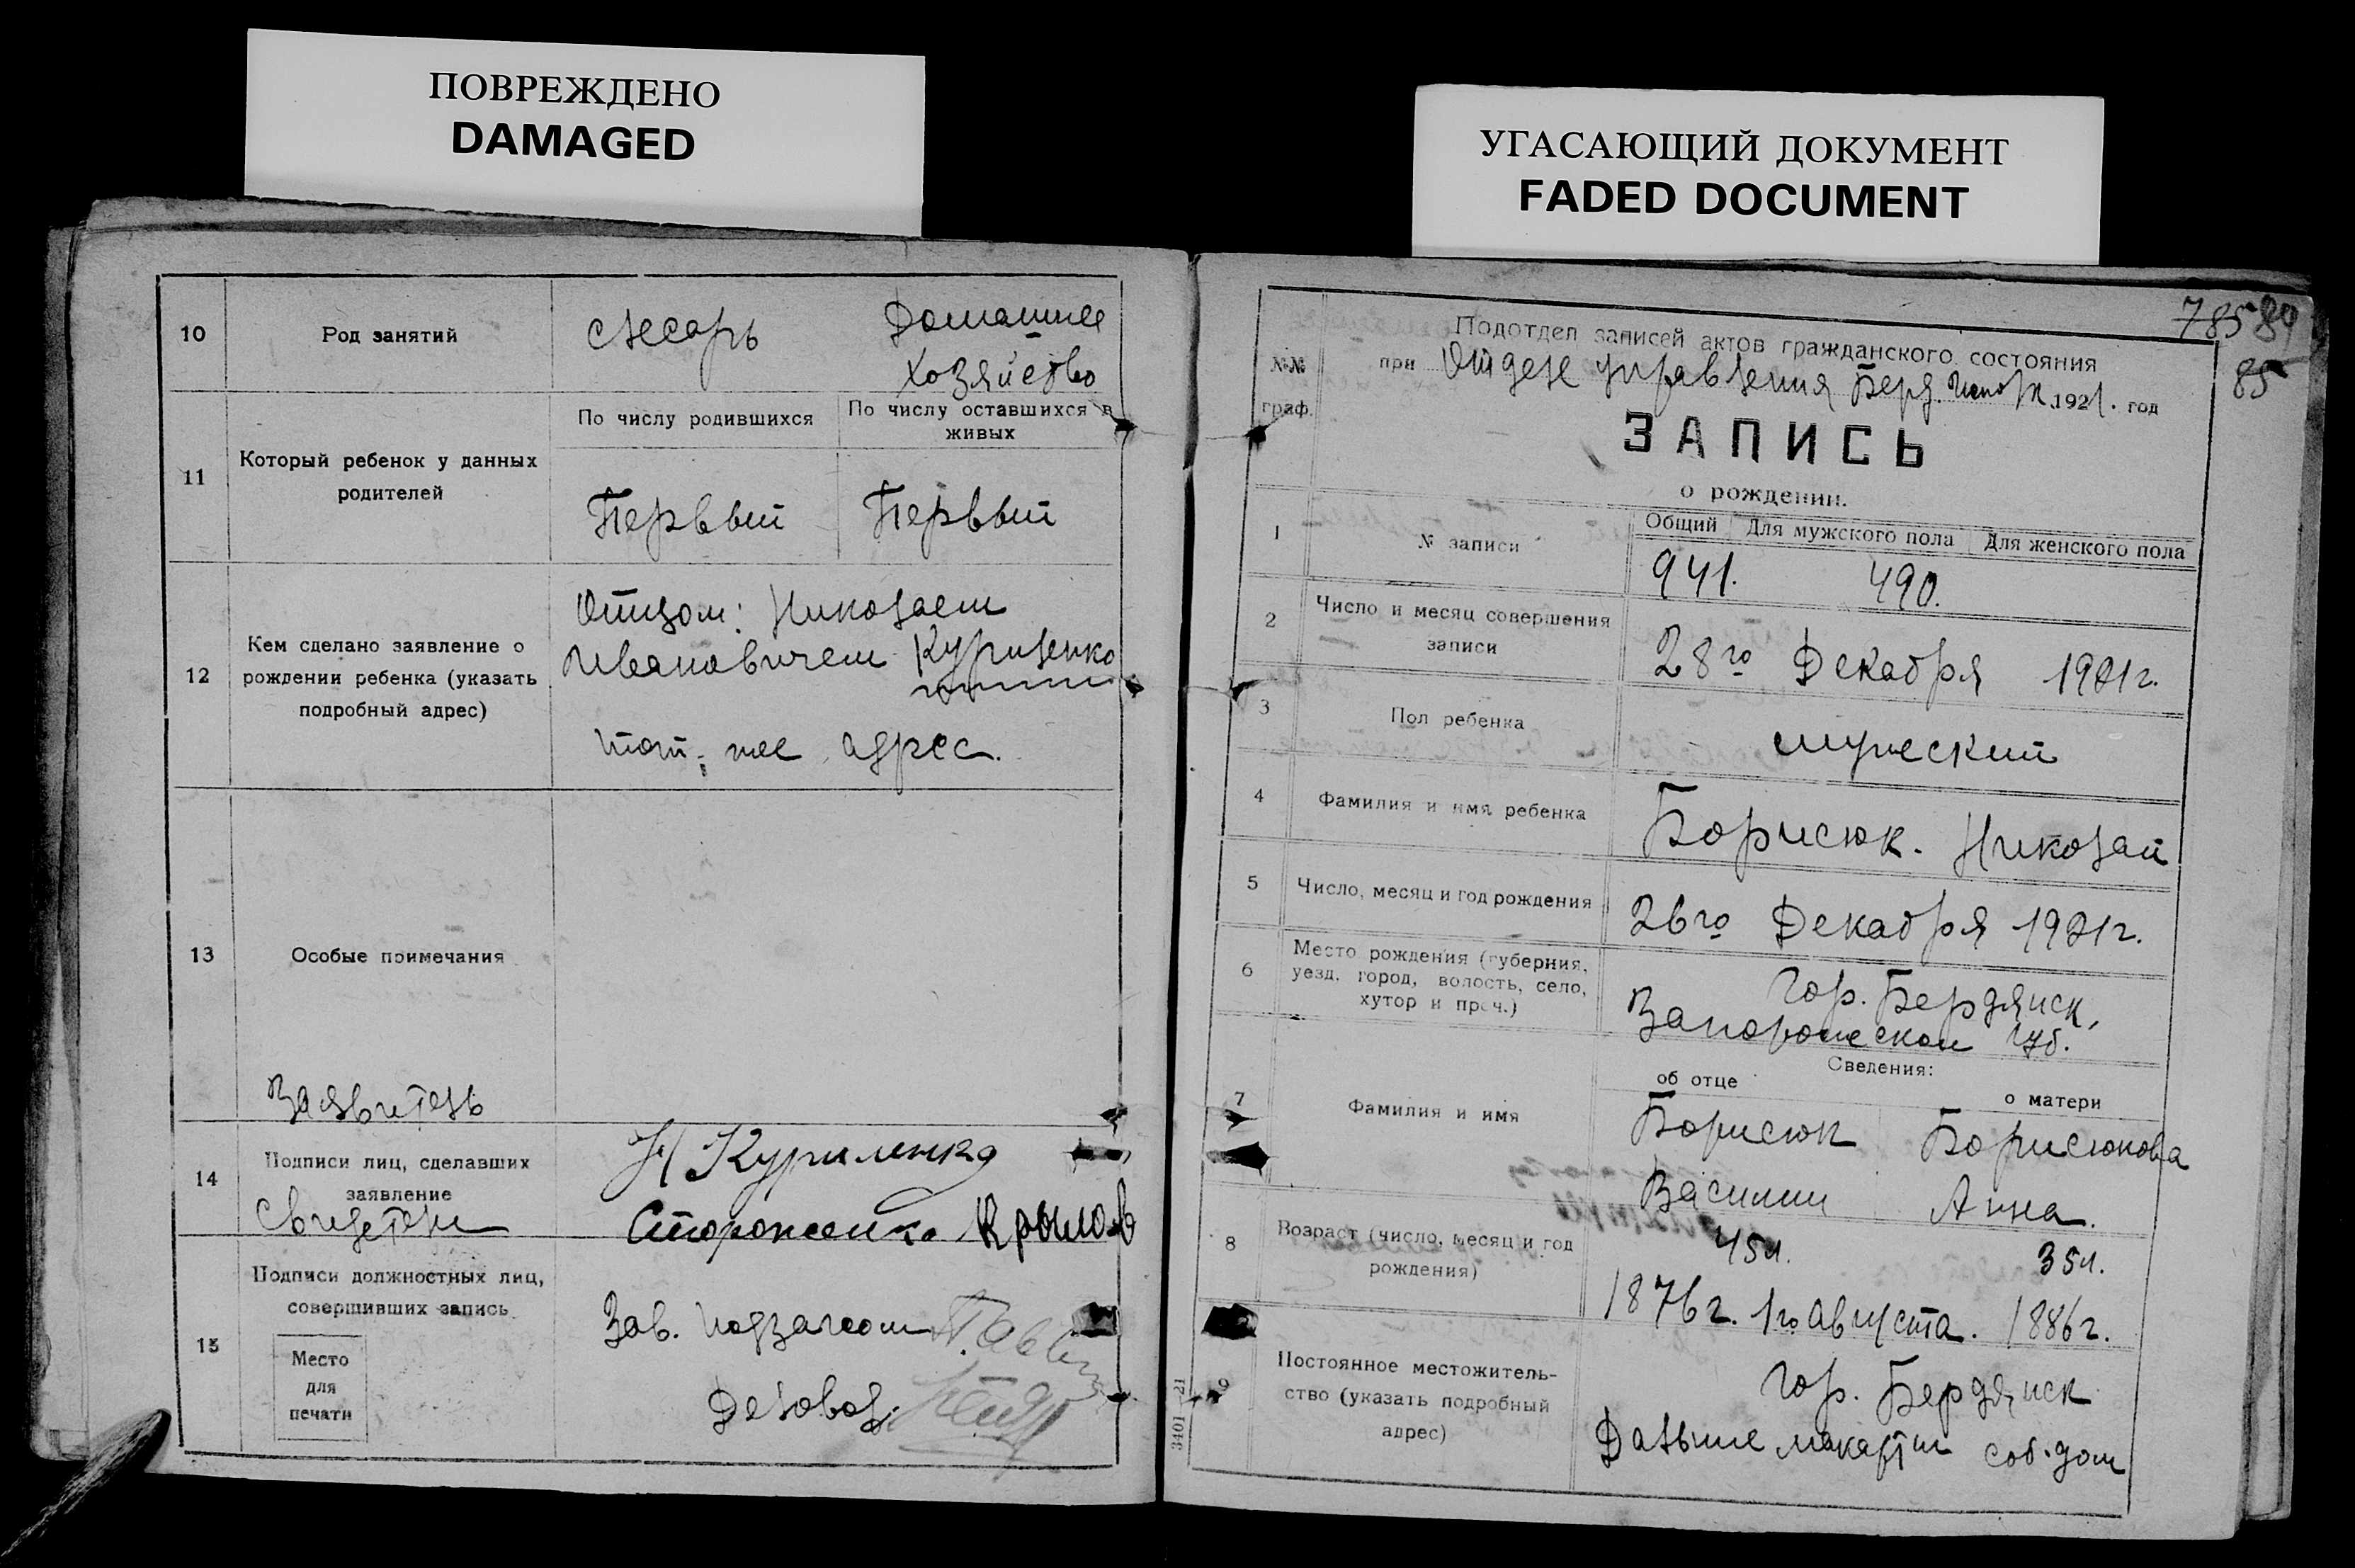 ПОВРЕЖДЕНО
DAMAGED
УГАСАЮЩИЙ ДОКУМЕНТ
FADED DOCUMENT
10 Род занятий слесарь Домашнее
хозяйство
11 Который ребенок у данных
родителей
По числу родившихся По числу оставшихся в
живых
Первый Первый
12 Кем сделано заявление о
рождении ребенка (указать
подробный адрес)
Отцом: Николаем
Ивановичем Куриленко
тот-же адрес.
13 Особые примечания
Заявитель
14 Подписи лиц, сделавших
заявление
Н Куриленко
Свидетели Стороженко Крылов
15 Подписи должностных лиц,
совершивших запись
Место
для
печати
Зав. Подзагсом
Деловод.
785 89
85
№№
граф.
Подотдел записей актов гражданского состояния
при Отделе управления Берд. 1921. год
ЗАПИСЬ
о рождении.
1 № записи
Общий Для мужского пола Для женского пола
941. 490.
2 Число и месяц совершения
записи
28го Декабря 1921г.
3 Пол ребенка мужский
4 Фамилия и имя ребенка Борисюк. Николай
5 Число, месяц и год рождения 26го Декабря 1921г.
6 Место рождения (губерния,
уезд, город, волость, село,
хутор и проч.)
гор. Бердянск,
Запорожской губ.
Сведения:
об отце о матери
7 Фамилия и имя
Борисюк Борисюкова
Василий Анна.
8 Возраст (число, месяц и год
рождения)
45л. 35л.
1876г. 1го Августа. 1886г.
9 Постоянное местожитель-
ство (указать подробный
адрес)
гор. Бердянск
соб. дом
3401—21